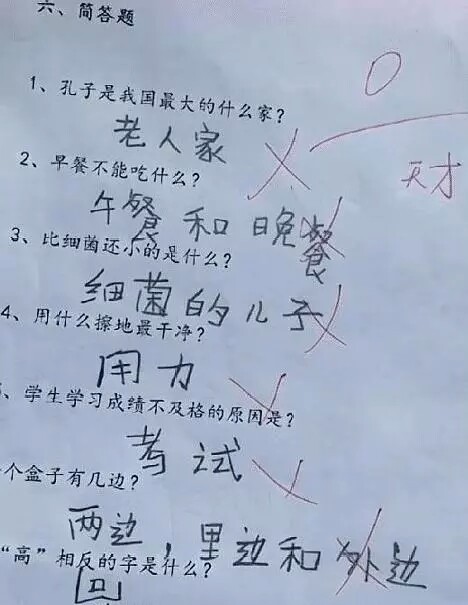 六、简答题
0
1、孔子是我国最大的什么家?
老人家
天才
2、早餐不能吃什么?
午餐和晚餐
3、比细菌还小的是什么?
细菌的儿子
4、用什么擦地最干净?
用力
、学生学习成绩不及格的原因是?
考试
个盒子有几边?
两边,里边和外边
“高”相反的字是什么?